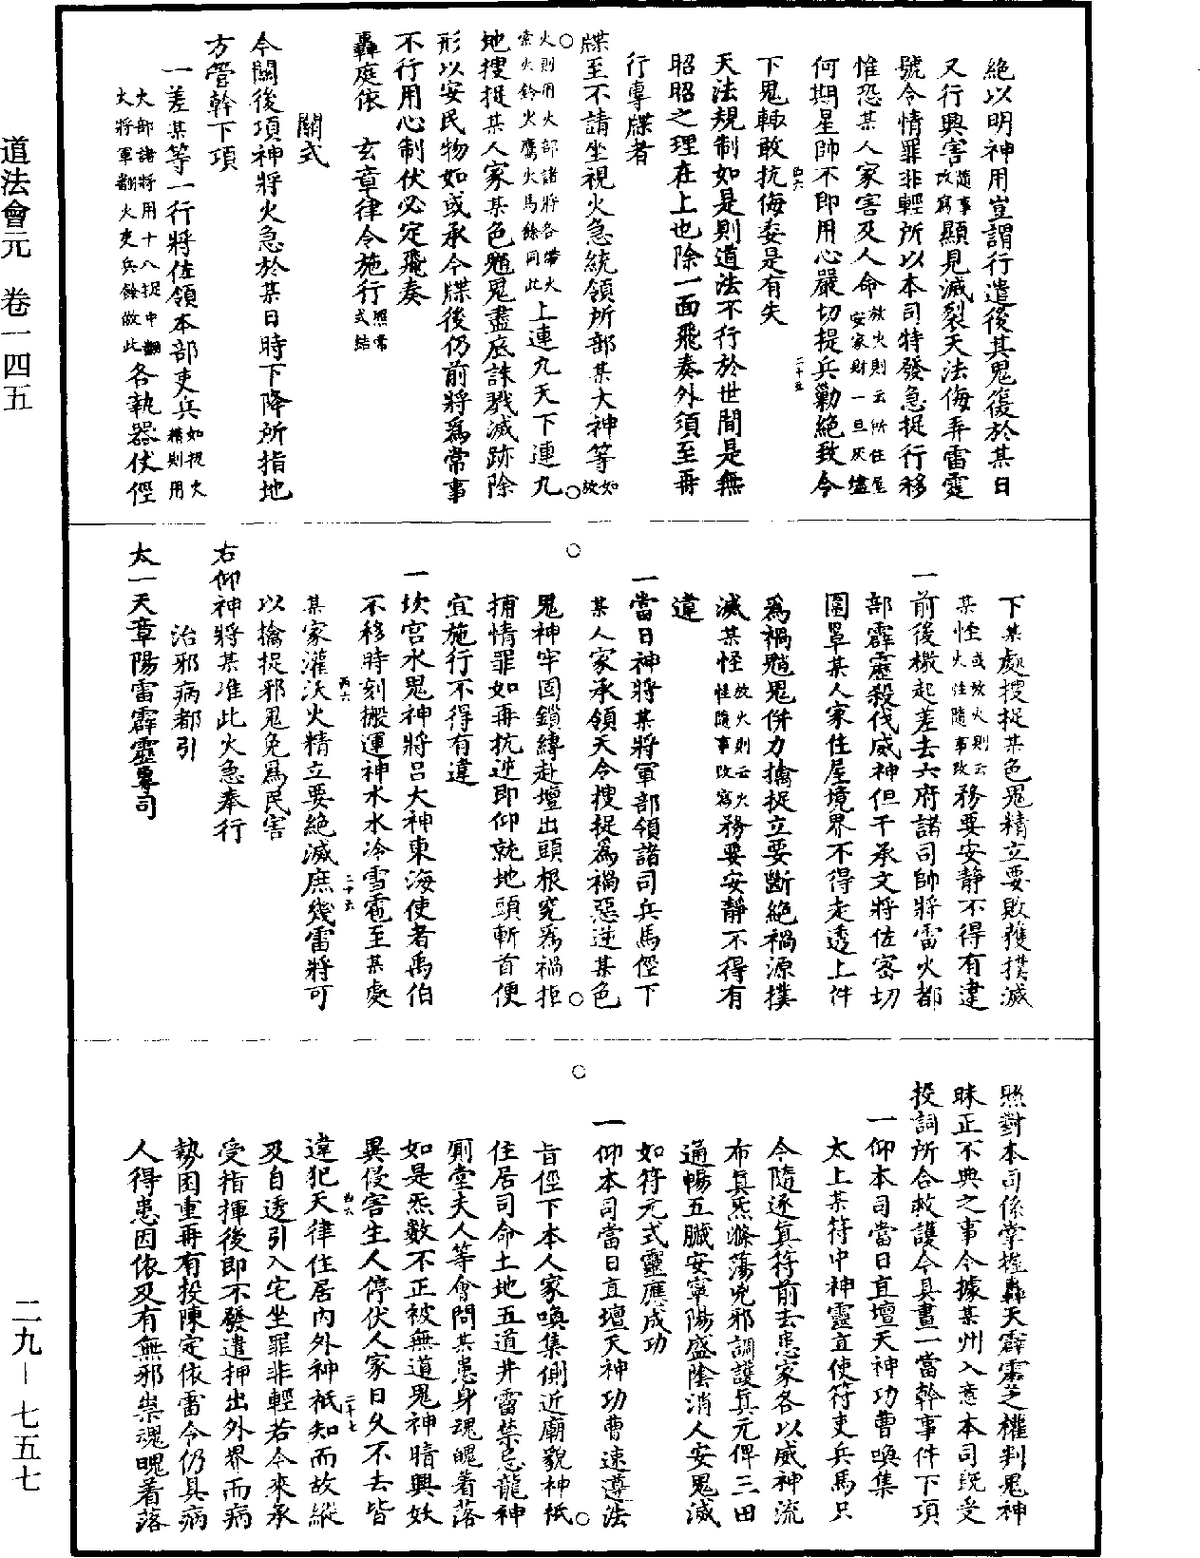 絶以明神用豈謂行遣後其鬼復於某日
又行興害隨事改寫顯見滅裂天法侮弄雷霆
號令情罪非輕所以本司特發急捉行移
惟恐某人家害及人命放火則云所住屋安家財一旦灰燼
何期星帥不即用心嚴切提兵勦絶致今
下鬼輒敢抗侮委是有失
天法規制如是則道法不行於世間是無
昭昭之理在上也除一面飛奏外須至再
行專牒者
牒至不請坐視火急統領所部某大神等如放
火則用火部諸將各帶火索火鈴火鷹火馬餘同此上連九天下連九
地搜捉某人家某色魈鬼盡底誅戮滅跡除
形以安民物如或承令牒後仍前將爲常事
不行用心制伏必定飛奏
轟庭依 玄章律令施行照常式結
關式
令關後項神將火急於某日時下降所指地
方管幹下項
一差某等一行將佐領本部吏兵如視火精則用
大部諸將用十八捉申翻大將軍翻火吏兵餘倣此各執器仗徑
下某處搜捉某色鬼精立要敗獲撲滅
某怪或放火則云火怪隨事改務要安靜不得有違
一前後檄起差去六府諸司帥將雷火都
部霹靂殺伐威神但干承文將佐密切
圍罩某人家住屋境界不得走透上件
爲禍魈鬼併力擒捉立要斷絶禍源撲
滅某怪放火則云火怪隨事改寫務要安靜不得有
違
一當日神將某將軍部領諸司兵馬徑下
某人家承領天令搜捉爲禍惡逆某色
鬼神牢固鎖縛赴壇出頭根究爲禍拒
捕情罪如再抗逆即仰就地頭斬首便
宜施行不得有違
一坎宮水鬼神將呂大神東海使者禹伯
不移時刻搬運神水水冷雪雹至某處
某家灌沃火精立要絶滅庶幾雷將可
以擒捉邪鬼免爲民害
右仰神將某准此火急奉行
治邪病都引
太一天章陽雷霹靂專司
照對本司係掌握轟天霹靂之權判鬼神
昧正不典之事今據某州入意本司旣受
投詞所合救護今具畫一當幹事件下項
一仰本司當日直壇天神功曹喚集
太上某符中神靈直使符吏兵馬只
今隨逐眞符前去患家各以威神流
布眞炁滌蕩兇邪調護眞元俾三田
通暢五臟安寧陽盛陰消人安鬼滅
如符元式靈應成功
一仰本司當日直壇天神功曹速遵法
旨徑下本人家喚集側近廟貌神祇
住居司命土地五道井雷禁忌龍神
厠堂夫人等會問某患身魂魄着落
如是炁數不正被無道鬼神暗興妖
異侵害生人停伏人家日久不去皆
違犯天律住居內外神祇知而故縱
及自透引入宅坐罪非輕若今來承
受指揮後即不發遣押出外界而病
勢困重再有投陳定依雷令仍具病
人得患因依又有無邪祟魂魄着落
道法會元 卷一四五
二九－七五七